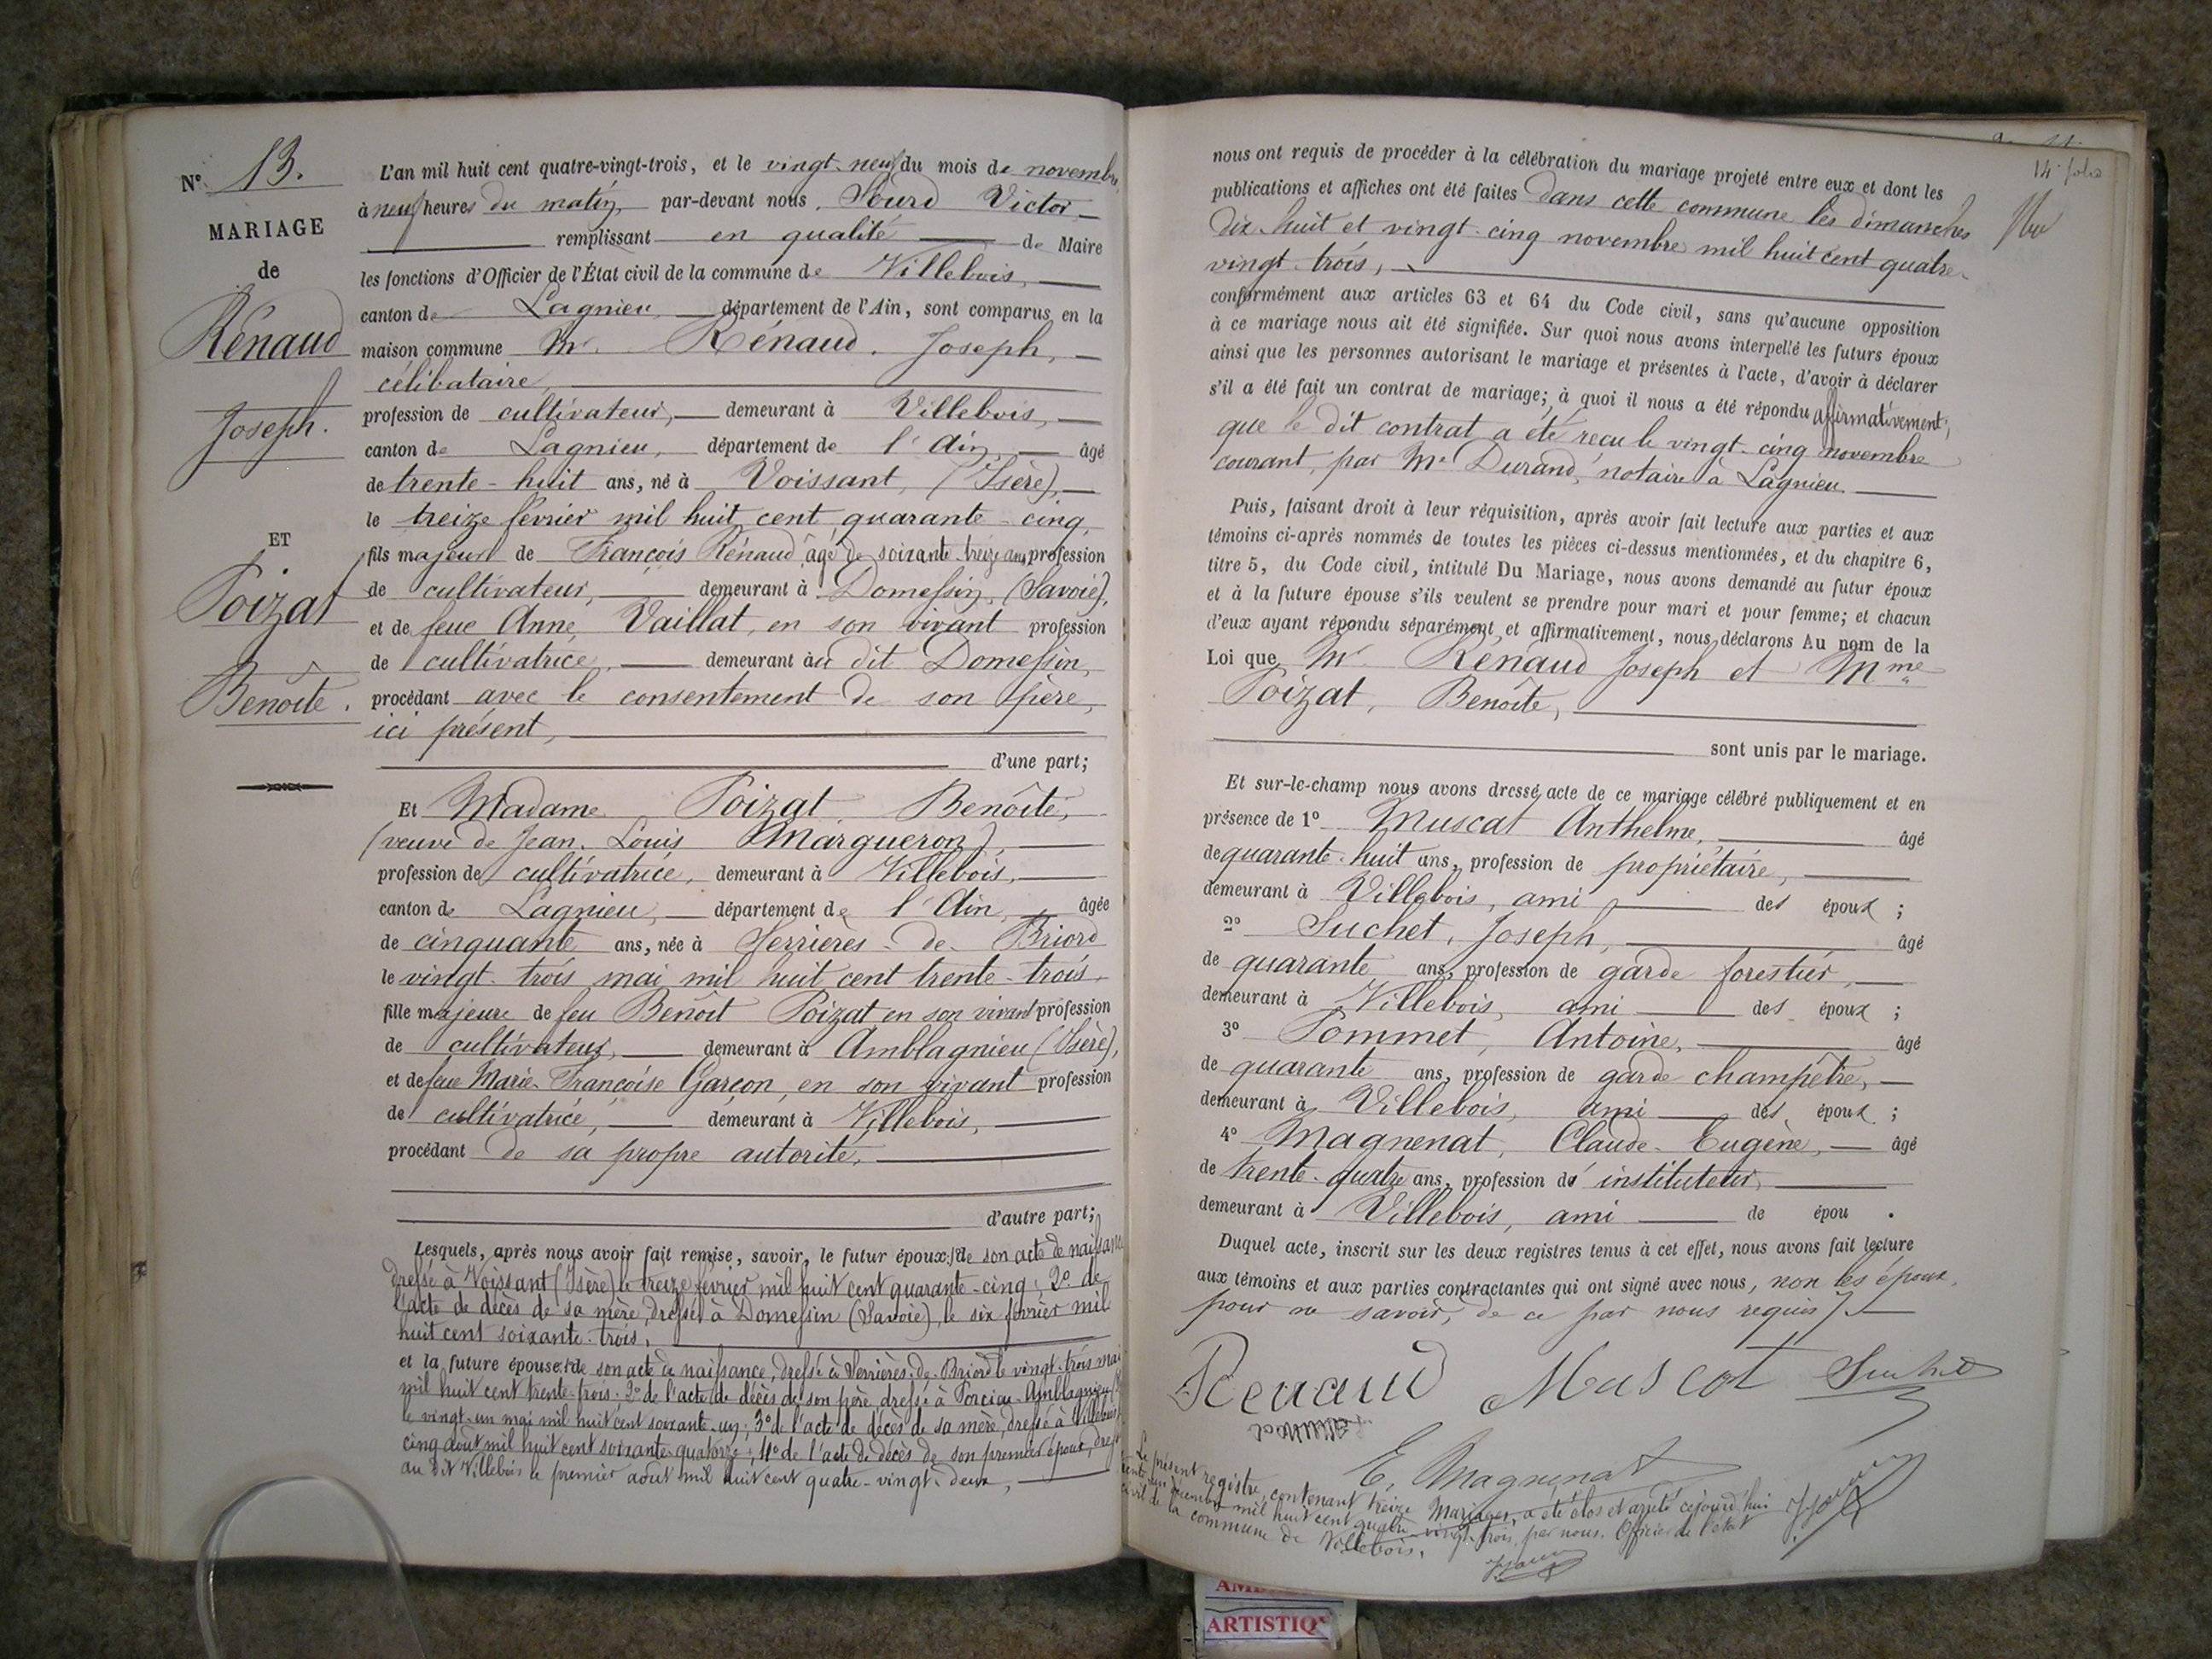 N° 13.
MARIAGE
de
Rénaud
Joseph.
ET
Poizat
Benoîte.
L'an mil huit cent quatre-vingt-trois, et le vingt-neuf du mois de novembre
à neuf heures du matin, par-devant nous, Sourd Victor
remplissant en qualité de Maire
les fonctions d'Officier de l'État civil de la commune de Villebois,
canton de Lagnieu, département de l'Ain, sont comparus en la
maison commune Mr. Rénaud, Joseph,
célibataire,
profession de cultivateur, demeurant à Villebois,
canton de Lagnieu, département de l'Ain, âgé
de trente-huit ans, né à Voissant, (Isère),
le treize février mil huit cent quarante-cinq,
fils majeur de François Rénaud, âgé de soixante-treize ans, profession
de cultivateur, demeurant à Domessin, (Savoie),
et de feue Anne Vaillat, en son vivant profession
de cultivatrice, demeurant au dit Domessin,
procédant avec le consentement de son père,
ici présent,
d'une part;
Et Madame Poizat Benoîte,
(veuve de Jean-Louis Margueron),
profession de cultivatrice, demeurant à Villebois,
canton de Lagnieu, département de l'Ain, âgée
de cinquante ans, née à Serrières-de-Briord
le vingt-trois mai mil huit cent trente-trois,
fille majeure de feu Benoît Poizat en son vivant profession
de cultivateur, demeurant à Amblagnieu (Isère),
et de feue Marie-Françoise Garçon, en son vivant profession
de cultivatrice, demeurant à Villebois,
procédant de sa propre autorité,
d'autre part;
Lesquels, après nous avoir fait remise, savoir, le futur époux: 1° de son acte de naissance
dressé à Voissant (Isère) le treize février mil huit cent quarante-cinq; 2° de
l'acte de décès de sa mère, dressé à Domessin (Savoie), le six février mil
huit cent soixante-trois,
et la future épouse: 1° de son acte de naissance, dressé à Serrières-de-Briord le vingt-trois mai
mil huit cent trente-trois; 2° de l'acte de décès de son père, dressé à Porcieu-Amblagnieu
le vingt-un mai mil huit cent soixante-un; 3° de l'acte de décès de sa mère, dressé à Villebois
cinq août mil huit cent soixante-quatorze; 4° de l'acte de décès de son premier époux, dressé
au dit Villebois le premier août mil huit cent quatre-vingt-deux,
14e folio
nous ont requis de procéder à la célébration du mariage projeté entre eux et dont les
publications et affiches ont été faites dans cette commune les dimanches
dix-huit et vingt-cinq novembre mil huit cent quatre-
vingt-trois,
conformément aux articles 63 et 64 du Code civil, sans qu'aucune opposition
à ce mariage nous ait été signifiée. Sur quoi nous avons interpellé les futurs époux
ainsi que les personnes autorisant le mariage et présentes à l'acte, d'avoir à déclarer
s'il a été fait un contrat de mariage; à quoi il nous a été répondu affirmativement;
que le dit contrat a été reçu le vingt-cinq novembre
courant, par Me Durand, notaire à Lagnieu.
Puis, faisant droit à leur réquisition, après avoir fait lecture aux parties et aux
témoins ci-après nommés de toutes les pièces ci-dessus mentionnées, et du chapitre 6,
titre 5, du Code civil, intitulé Du Mariage, nous avons demandé au futur époux
et à la future épouse s'ils veulent se prendre pour mari et pour femme; et chacun
d'eux ayant répondu séparément et affirmativement, nous déclarons Au nom de la
Loi que Mr. Rénaud Joseph et Mme
Poizat, Benoîte,
sont unis par le mariage.
Et sur-le-champ nous avons dressé acte de ce mariage célébré publiquement et en
présence de 1° Muscat Anthelme, âgé
de quarante-huit ans, profession de propriétaire,
demeurant à Villebois, ami des époux;
2° Suchet, Joseph, âgé
de quarante ans, profession de garde forestier,
demeurant à Villebois, ami des époux;
3° Pommet, Antoine, âgé
de quarante ans, profession de garde champêtre,
demeurant à Villebois, ami des époux;
4° Magnenat, Claude-Eugène, âgé
de trente-quatre ans, profession d'instituteur,
demeurant à Villebois, ami de épou .
Duquel acte, inscrit sur les deux registres tenus à cet effet, nous avons fait lecture
aux témoins et aux parties contractantes qui ont signé avec nous, non les époux,
pour ne savoir, de ce par nous requis.
Renaud Muscat Suchet
E. Magnenat
Le présent registre, contenant treize Mariages, a été clos et arrêté cejourd'hui
trente-un décembre mil huit cent quatre-vingt-trois, par nous, Officier de l'état
civil de la commune de Villebois.
ARTISTIQ